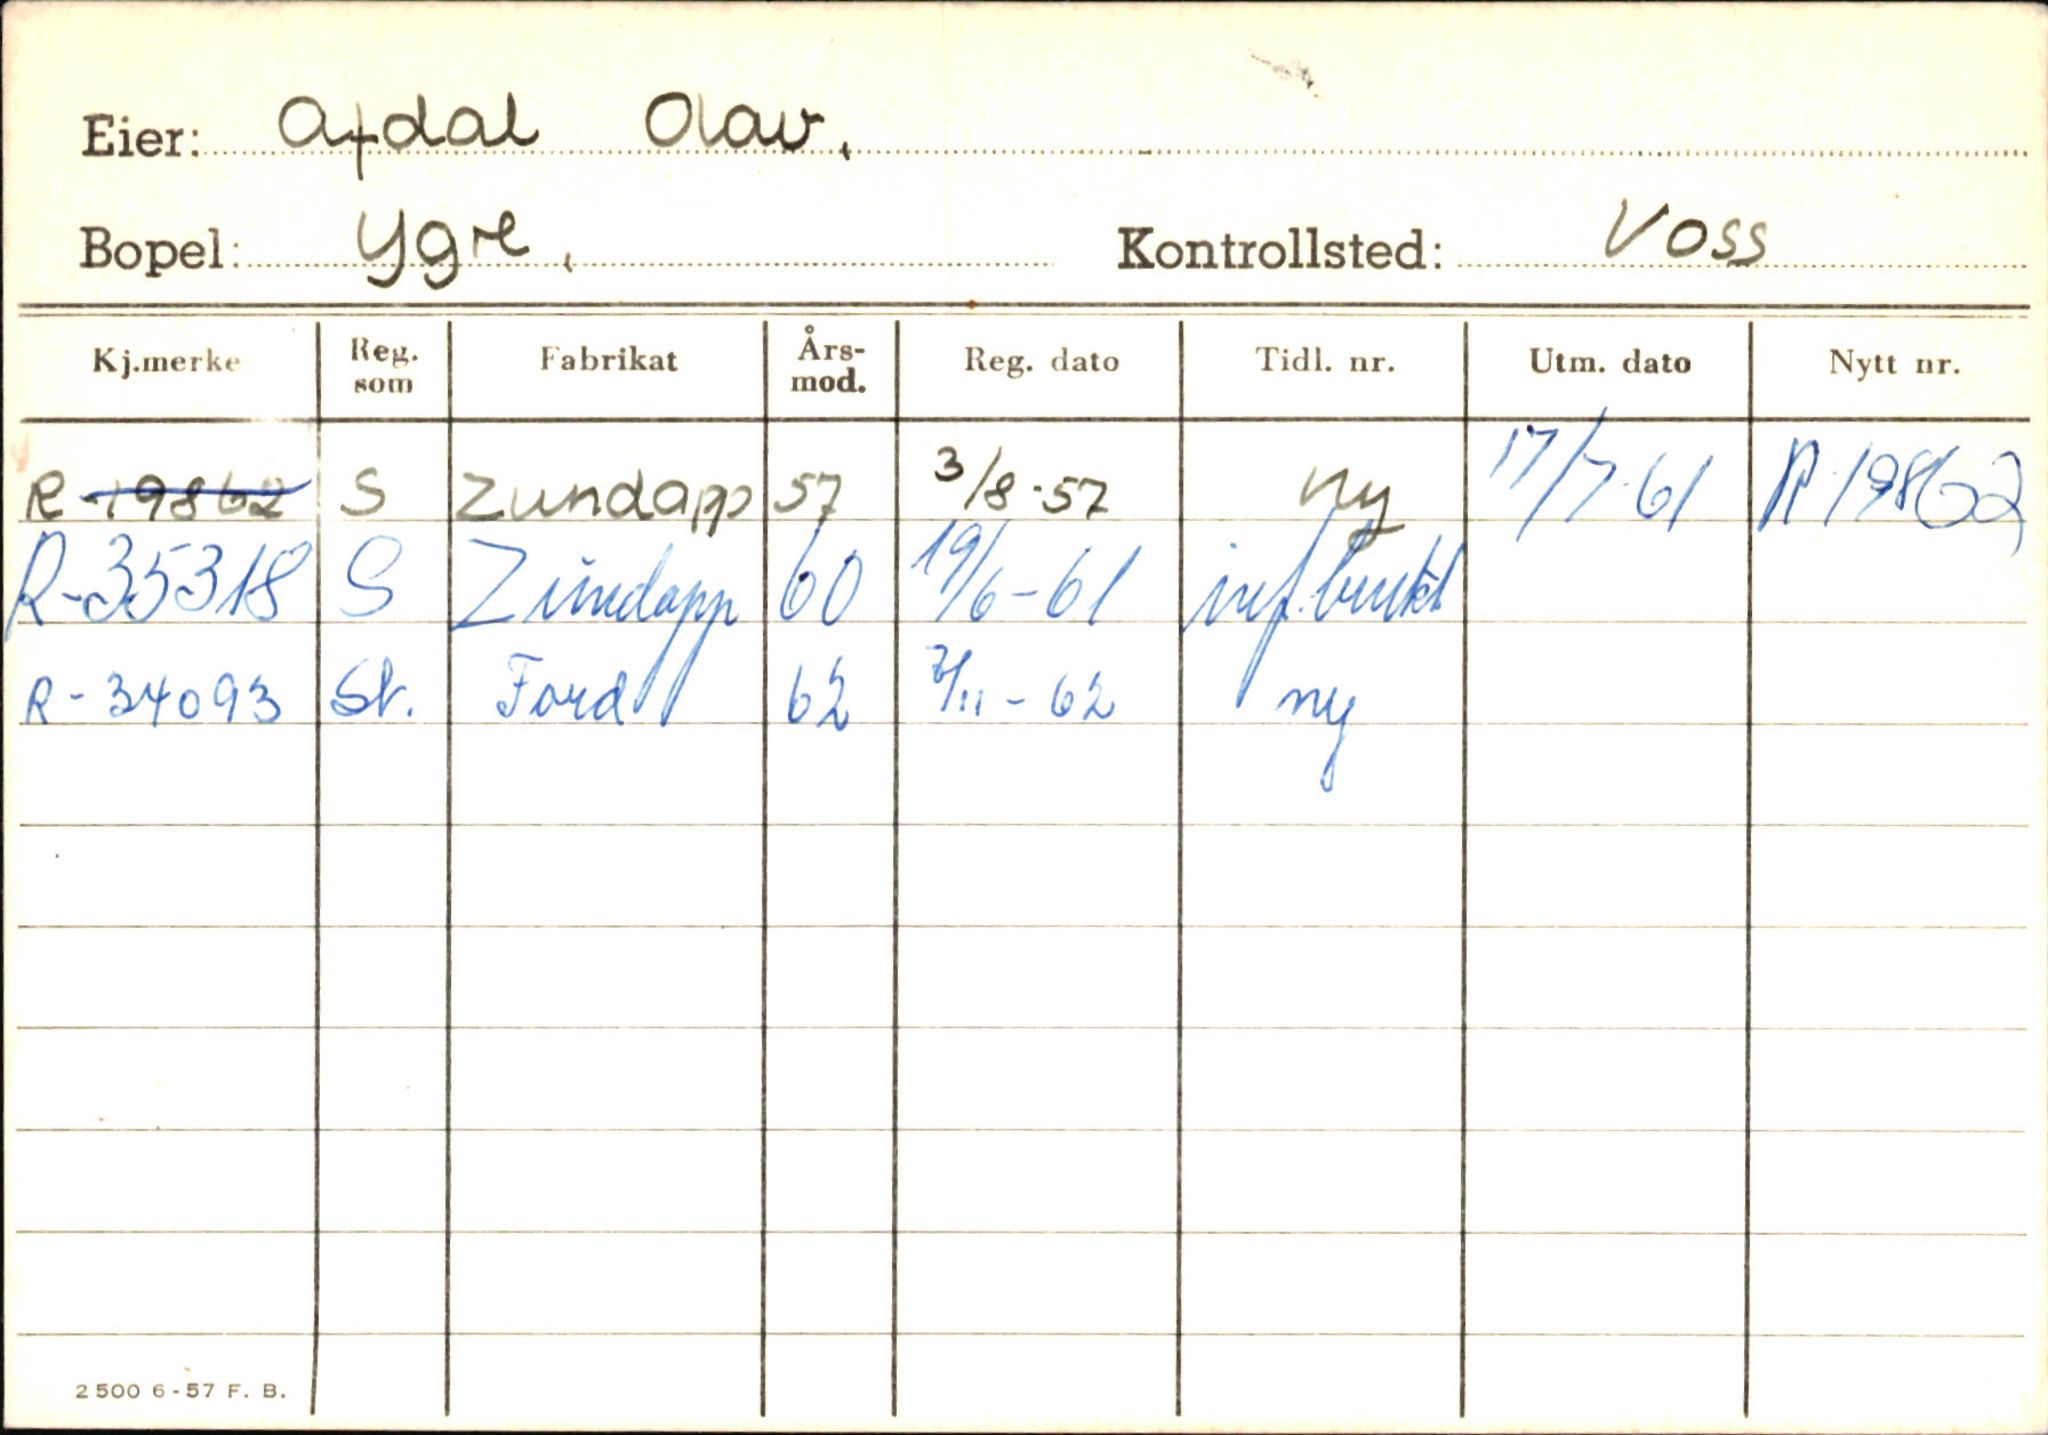 Eier: Afdal Olav,
Bopel: Ygre, Kontrollsted: Voss
Kj.merke Reg. som Fabrikat Års-mod. Reg. dato Tidl. nr. Utm. dato Nytt nr.
R-19862 S Zundapp 57 3/8-57 ny 17/7-61 R-19862
R-35318 S Zündapp 60 19/6-61 inf. brukt
R-34093 St. Ford 62 /11-62 ny
2500 6-57 F. B.